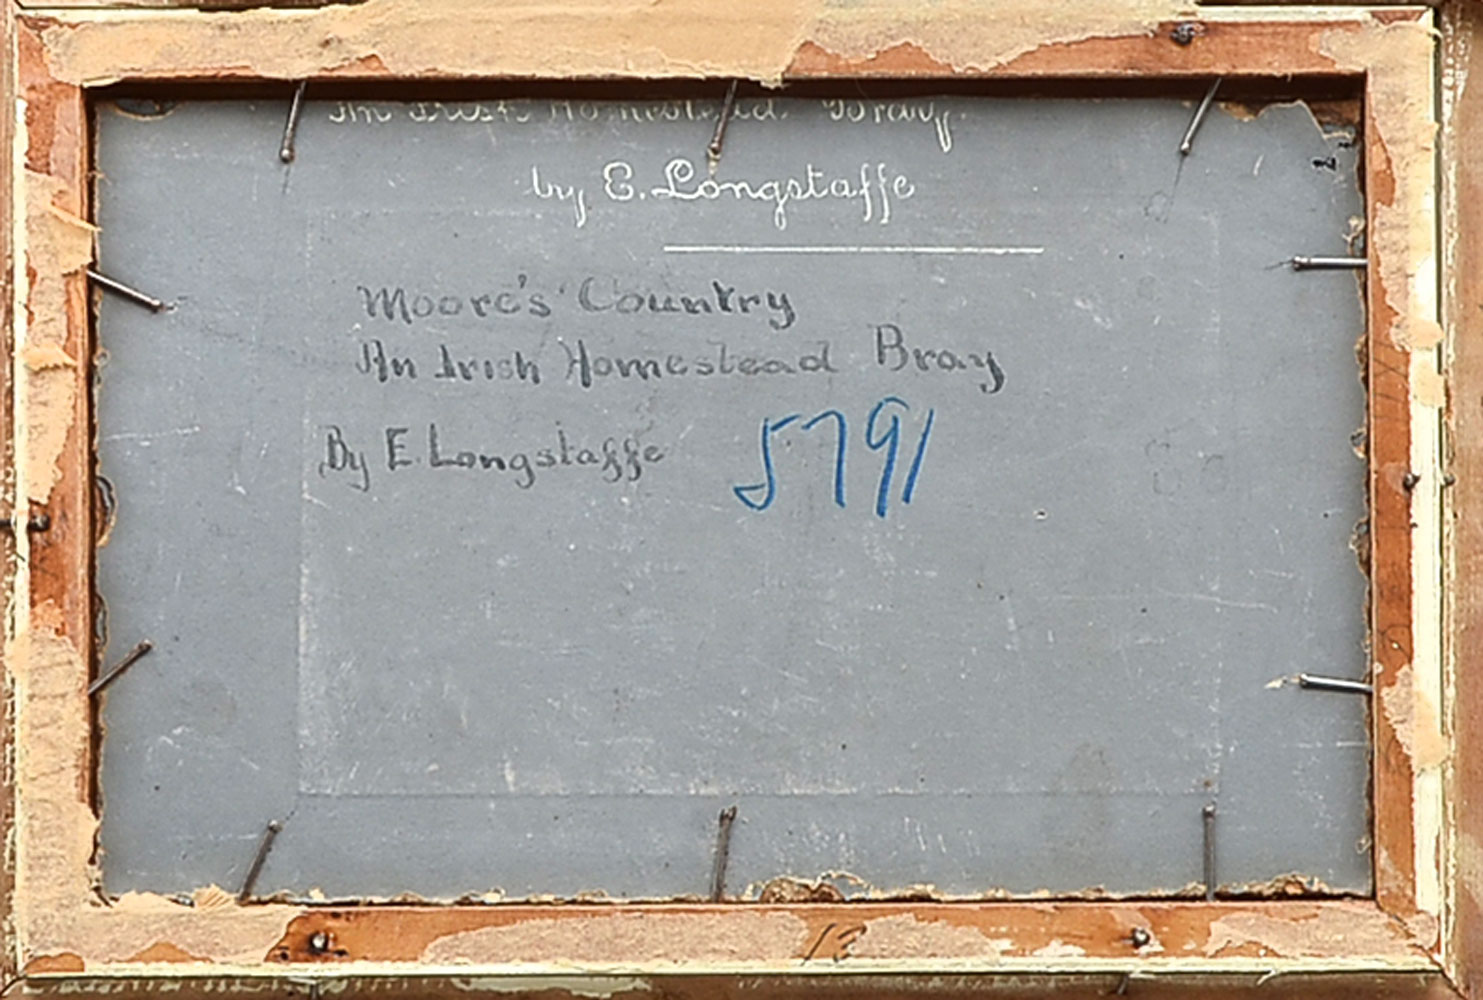 An Irish Homestead. Bray.
by E. Longstaffe
Moore's Country
An Irish Homestead Bray
By E. Longstaffe
5791
12